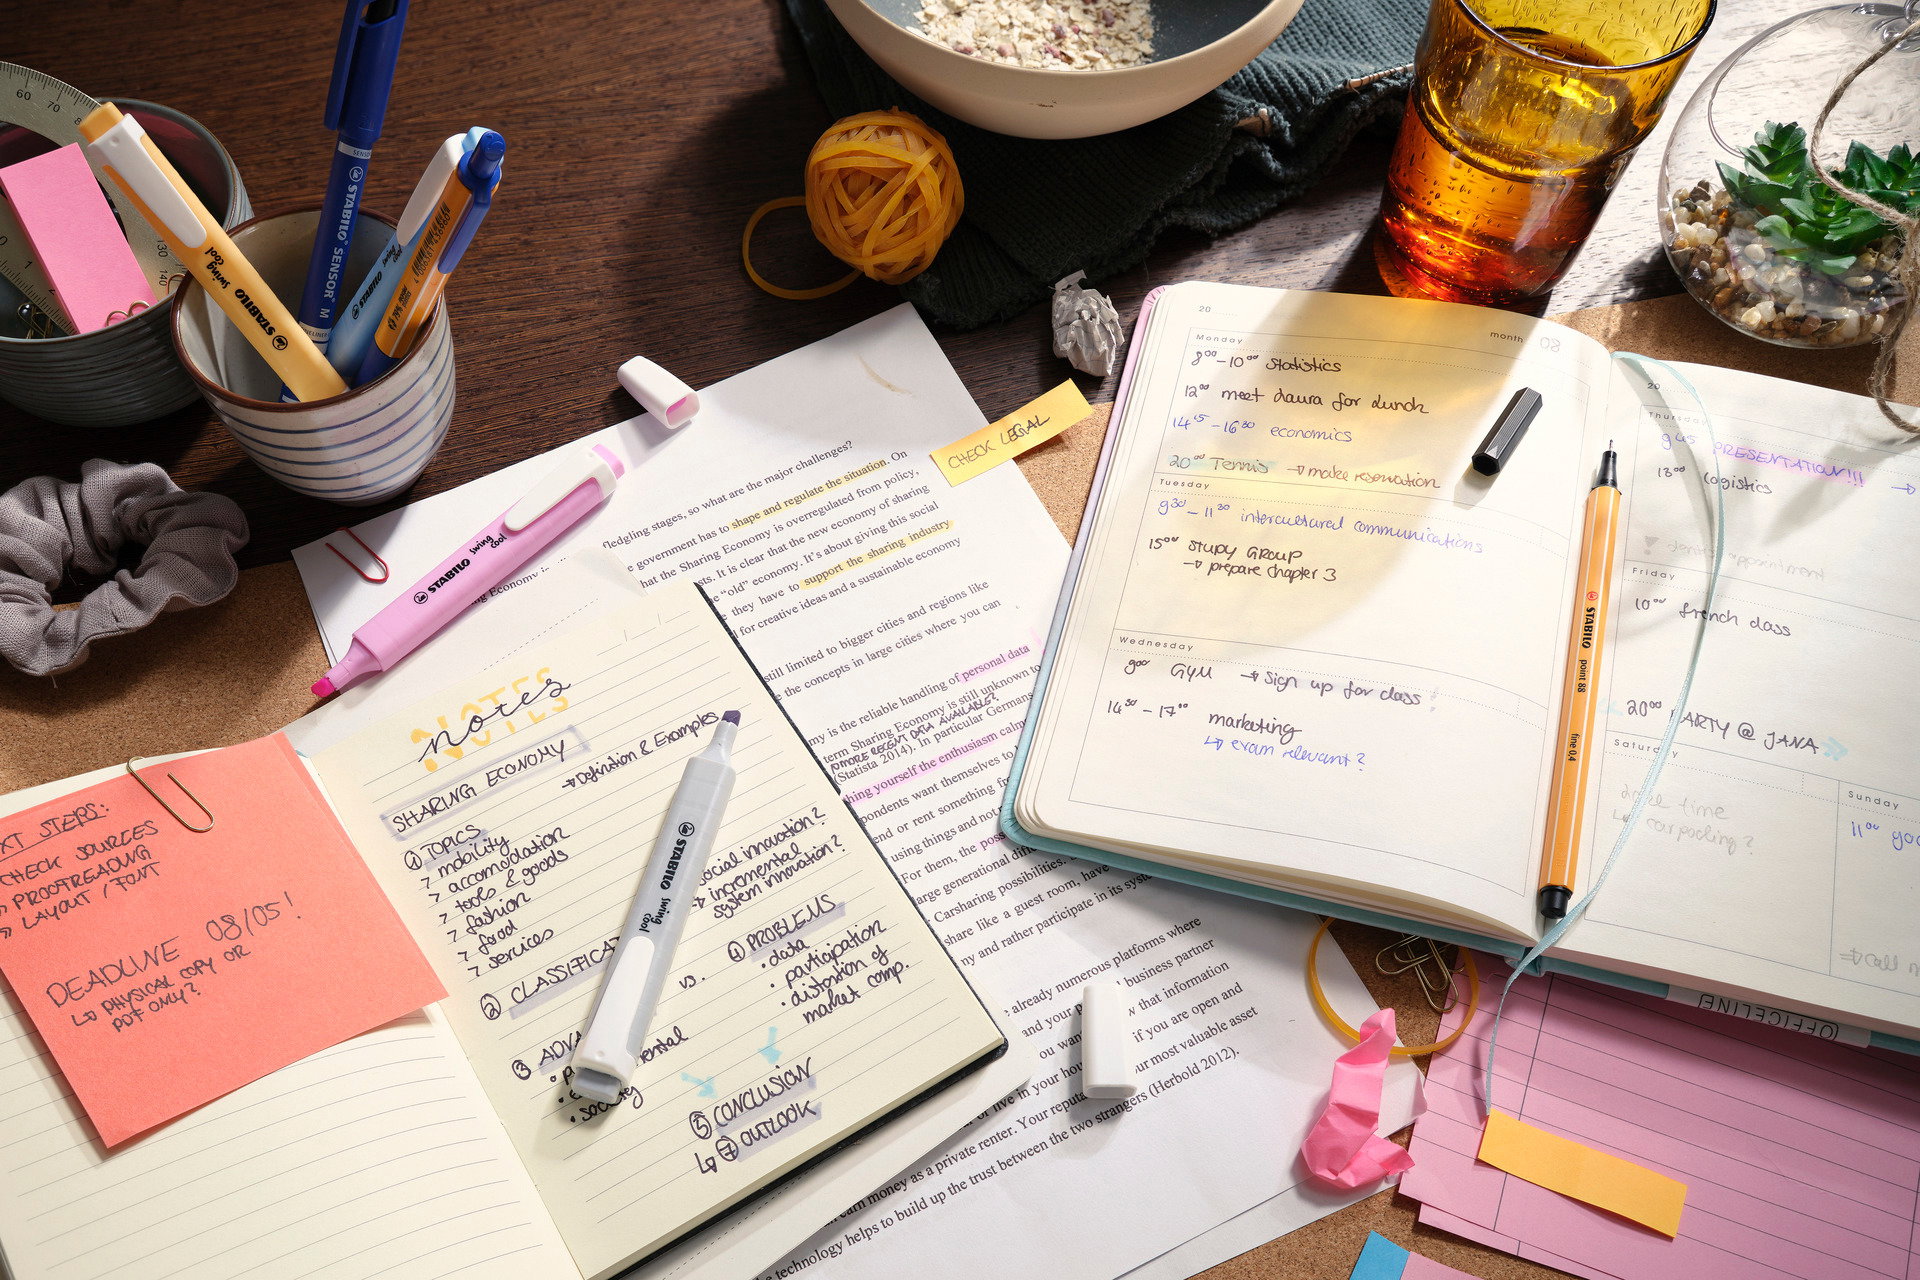 60 70
130 140
STABILO swing cool
STABILO SENSOR M
STABILO swing cool
STABILO swing cool
CHECK LEGAL
fledgling stages, so what are the major challenges?
government has to shape and regulate the situation. On
hat the Sharing Economy is overregulated from policy,
sts. It is clear that the new economy of sharing
"old" economy. It's about giving this social
they have to support the sharing industry
for creative ideas and a sustainable economy
still limited to bigger cities and regions like
the concepts in large cities where you can
my is the reliable handling of personal data
term Sharing Economy is still unknown to
MORE RECENT DATA AVAILABLE?
(Statista 2014). In particular Germans
thing yourself the enthusiasm calm
pondents want themselves to
end or rent something
using things and not
For them, the
large generational
Carsharing possibilities.
share like a guest room, have
ny and rather participate in its
already numerous platforms where
and your business partner
ou wan w that information
if you are open and
or live in your hou our most valuable asset
earn money as a private renter. Your reputa (Herbold 2012).
technology helps to build up the trust between the two strangers
XT STEPS:
CHECK SOURCES
PROOFREADING
LAYOUT / FONT
DEADLINE 08/05!
↳ PHYSICAL COPY OR
PDF ONLY?
NOTES
notes
SHARING ECONOMY
→ Definition & Examples
① TOPICS
> mobility
> accomodation
> tools & goods
> fashion
> food
> services
② CLASSIFICAT
social innovation?
→ incremental
system innovation?
vs.
③ ADVA
ental
• society
④ PROBLEMS
• data
• participation
• distortion of
market comp.
⑤ CONCLUSION
↳ ⑦ OUTLOOK
STABILO swing cool
20
month 08
Monday
8⁰⁰–10⁰⁰ Statistics
12⁰⁰ meet Laura for Lunch
14¹⁵–16³⁰ economics
20⁰⁰ Tennis → make reservation
Tuesday
9³⁰–11³⁰ intercultured communications
15⁰⁰ STUDY GROUP
→ prepare chapter 3
Wednesday
9⁰⁰ GYM → sign up for class!
14³⁰–17⁰⁰ marketing
↳ exam relevant?
STABILO point 88 fine 0,4
20
Thursday
9⁴⁵ PRESENTATION!!! →
13⁰⁰ Logistics
Friday
10⁰⁰ french class
20⁰⁰ PARTY @ JANA
Saturday
↳ carpooling?
Sunday
11⁰⁰
OFFICELINE